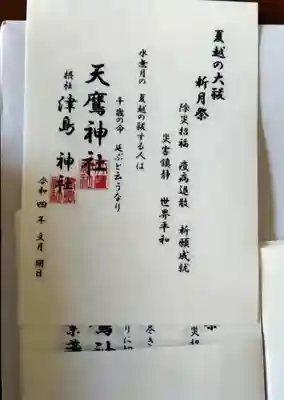 夏越の大祓
祈月祭
除災招福 疫病退散 祈願成就
災害鎮静 世界平和
水無月の 夏越の祓する人は
千歳の命 延ぶと云うなり
天鷹神社
摂社 津島 神社
令和四年 文月 朔日